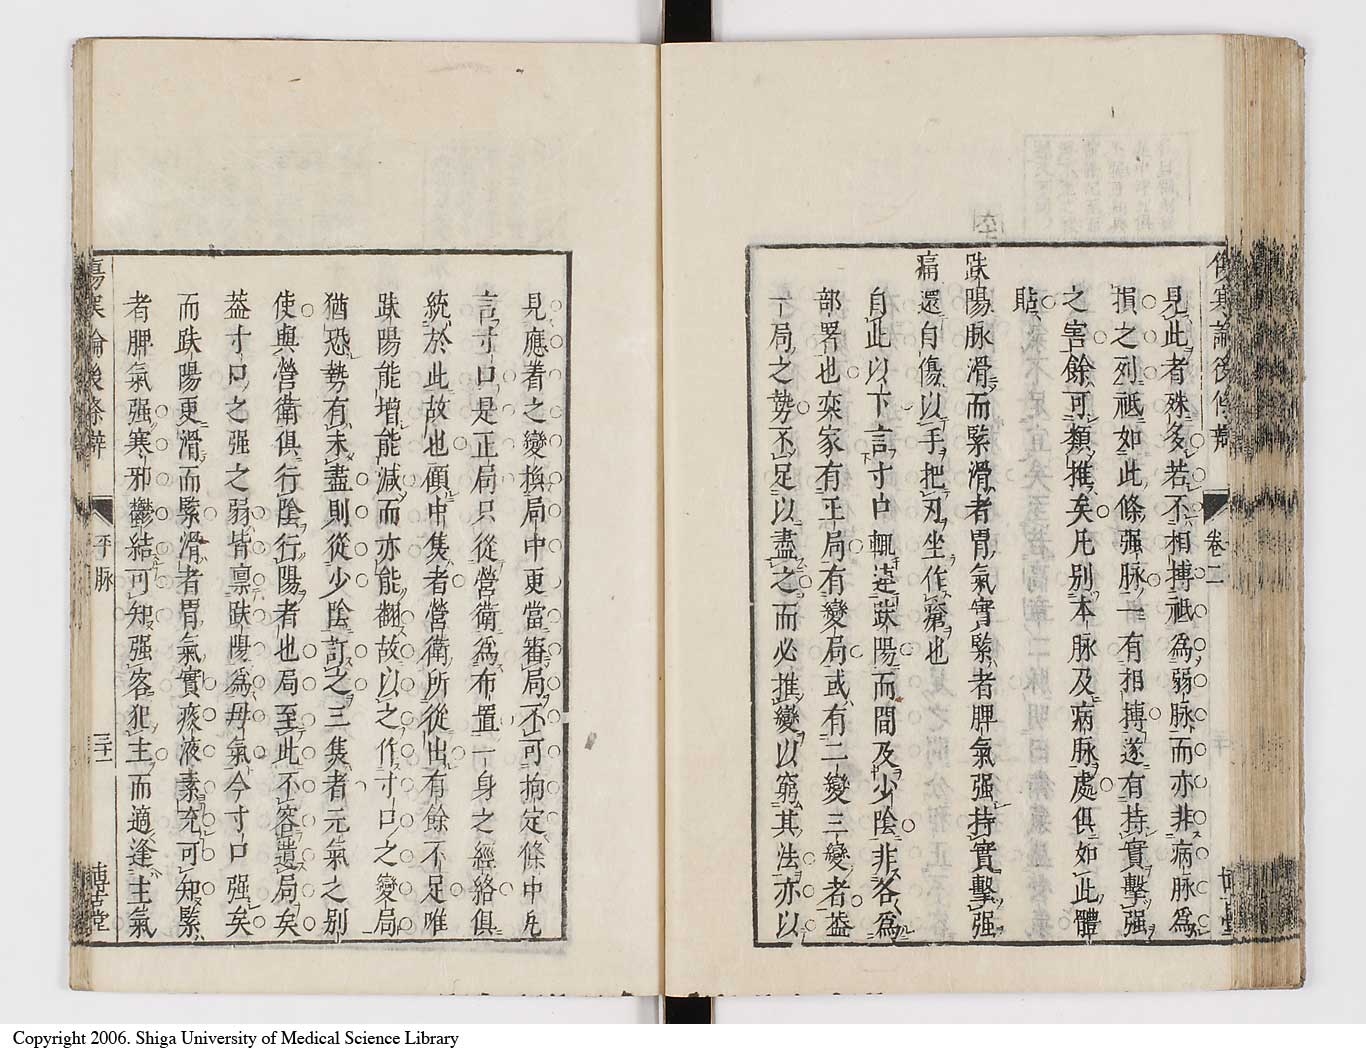 傷寒論後條辨
卷二
見此者殊多若不相搏祗爲弱脉而亦非病脉爲
損之列祗如此條强脉一有相搏遂有持實擊强
之害餘可類推矣凡別本脉及病脉處俱如此體
貼
趺陽脉滑而緊滑者胃氣實緊者脾氣强持實擊强
痛還自傷以手把刃坐作瘡也
自此以下言寸口輒遶趺陽而間及少陰非各爲
部署也奕家有正局有變局或有二變三變者葢
一局之勢不足以盡之而必推變以窮其法亦以
見應着之變換局中更當審局不可拘定條中凡
言寸口是正局只從營衛爲布置一身之經絡俱
統於此故也顧中隻者營衛所從出有餘不足唯
趺陽能增能減而亦能翻故以之作寸口之變局
猶恐勢有未盡則從少陰訂之三隻者元氣之別
使與營衛俱行陰行陽者也局至此不容遺局矣
葢寸口之强之弱皆禀趺陽爲母氣今寸口强矣
而趺陽更滑而緊滑者胃氣實痰液素充可知緊
者脾氣强寒邪鬱結可知强客犯主而適逢主氣
傷寒論後條辨
平脉
三十一
博古堂
Copyright 2006. Shiga University of Medical Science Library